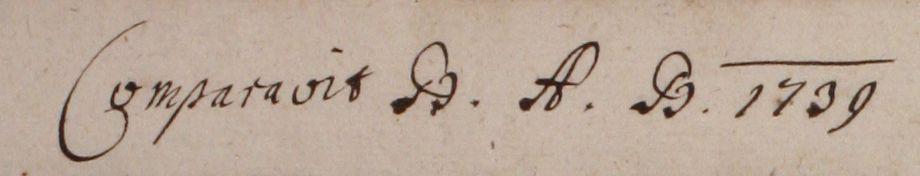 Comparavit B. A. B. 1739